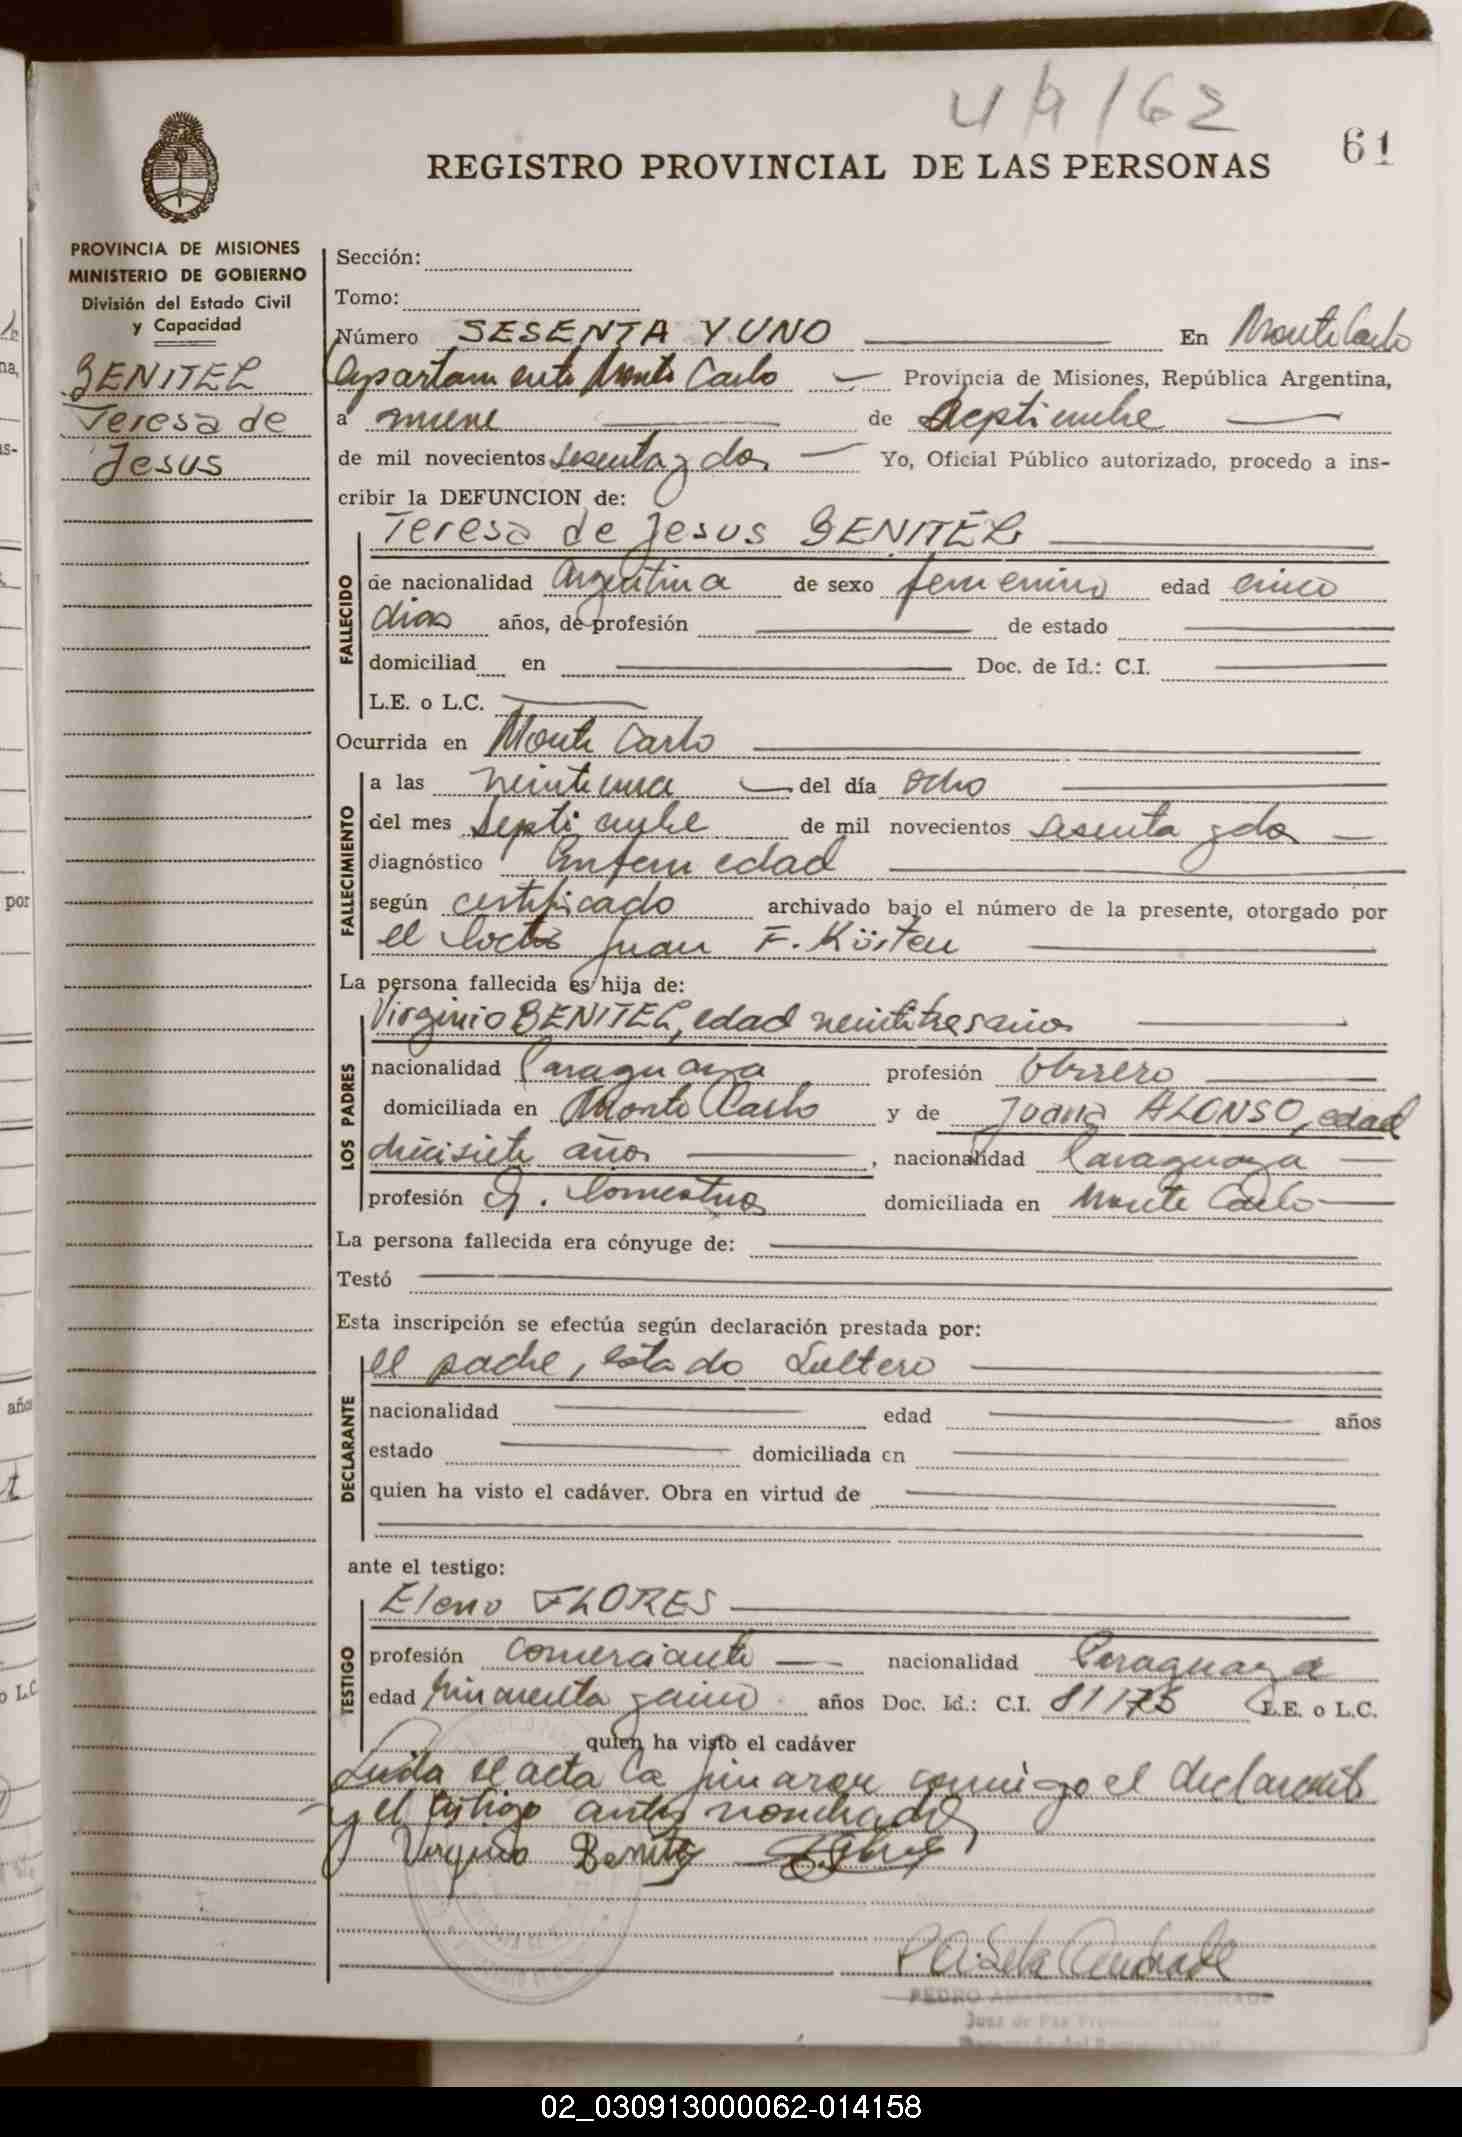 4/9/62
61
REGISTRO PROVINCIAL DE LAS PERSONAS
PROVINCIA DE MISIONES
MINISTERIO DE GOBIERNO
División del Estado Civil
y Capacidad
BENITEZ
Teresa de
Jesus
Sección:
Tomo:
Número SESENTA Y UNO En Monte Carlo
Departamento Monte Carlo Provincia de Misiones, República Argentina,
a nueve de Septiembre
de mil novecientos sesenta y dos Yo, Oficial Público autorizado, procedo a ins-
cribir la DEFUNCION de:
Teresa de Jesus BENITEZ
FALLECIDO
de nacionalidad Argentina de sexo femenino edad cinco
dias años, de profesión de estado
domiciliad en Doc. de Id.: C.I.
L.E. o L.C.
Ocurrida en Monte Carlo
FALLECIMIENTO
a las veintiuna del día ocho
del mes Septiembre de mil novecientos sesenta y dos
diagnóstico Enfermedad
según certificado archivado bajo el número de la presente, otorgado por
el Doctor Juan F. Kösten
La persona fallecida es hija de:
LOS PADRES
Virginio BENITEZ, edad veintitres años
nacionalidad Paraguaya profesión Obrero
domiciliada en Monte Carlo y de Juana ALONSO, edad
diecisiete años, nacionalidad Paraguaya
profesión Q. Domesticos domiciliada en Monte Carlo
La persona fallecida era cónyuge de:
Testó
Esta inscripción se efectúa según declaración prestada por:
DECLARANTE
el padre, estado Soltero
nacionalidad edad años
estado domiciliada en
quien ha visto el cadáver. Obra en virtud de
ante el testigo:
TESTIGO
Eleno FLORES
profesión Comerciante nacionalidad Paraguaya
edad cincuenta y cinco años Doc. Id.: C.I. 81175 L.E. o L.C.
quien ha visto el cadáver
Leida el acta la firaron conmigo el declarante
y el testigo antes nombrados
Virginio Benitez
PEDRO ANDRADE
Juez de Paz
02_030913000062-014158